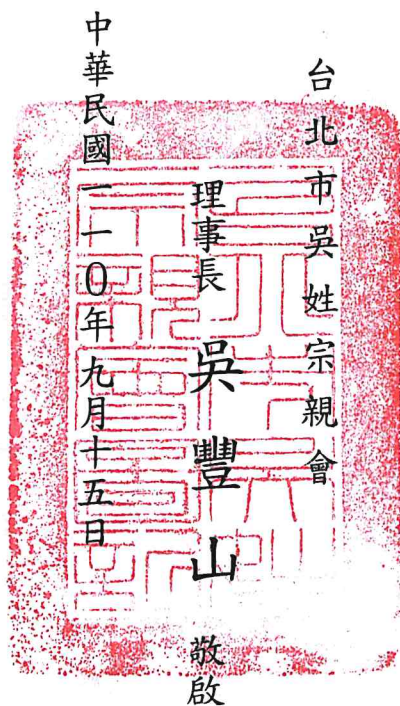 台北市吳姓宗親會
理事長 吳豐山 敬啟
中華民國一一〇年九月十五日